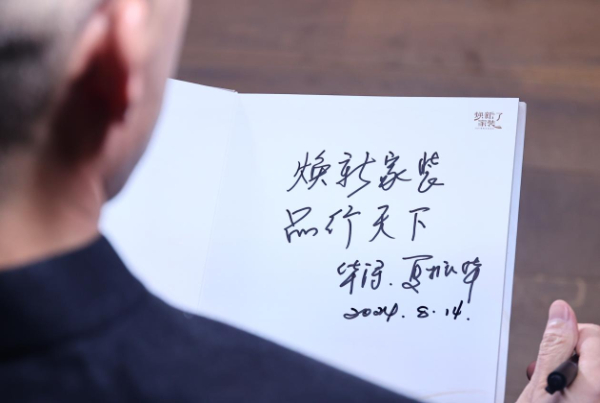 焕新了
家装
焕新家装
品行天下
华浔.夏振华
2024.8.14.